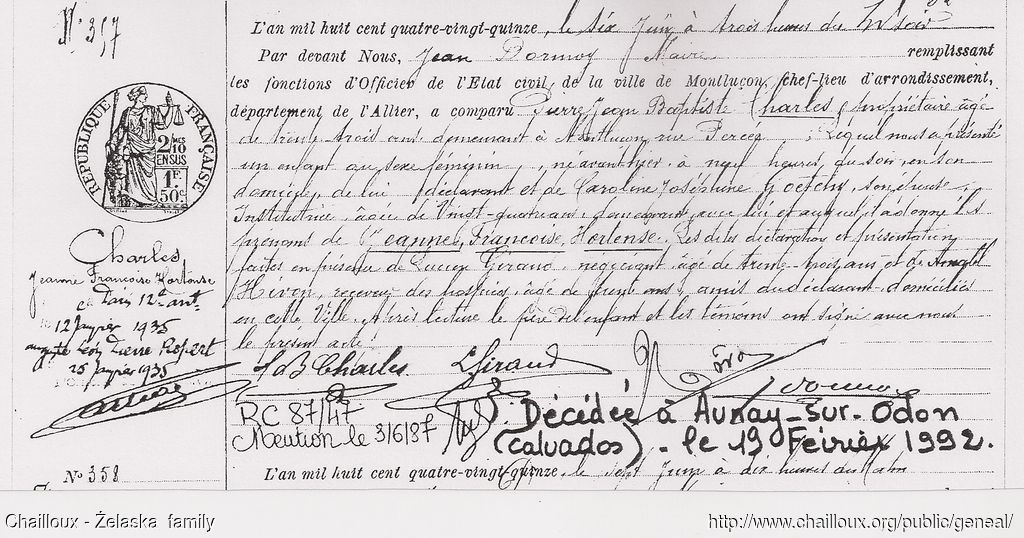 N° 357
L'an mil huit cent quatre-vingt-quinze, le six Juin à trois heures du soir
Par devant Nous, Jean Dormoy Maire remplissant
les fonctions d'Officier de l'Etat civil, de la ville de Montluçon, chef-lieu d'arrondissement,
département de l'Allier, a comparu Pierre Jean Baptiste Charles, propriétaire âgé
de trente trois ans demeurant à Montluçon, rue ; Lequel nous a présenté
un enfant du sexe féminin, né avant hier à neuf heures du soir, en son
domicile, de lui déclarant et de Caroline Joséphine son épouse
Institutrice, âgée de vingt-quatre ans, demeurant avec lui et auquel il a donné les
prénoms de Jeanne, Françoise, Hortense. Les dites déclaration et présentation
faites en présence de Lucien Giraud, négociant âgé de trente-trois ans et de
receveur des hospices, âgé de ans, amis du déclarant domiciliés
en cette Ville. Après lecture le père de l'enfant et les témoins ont signé avec nous
le présent acte.
REPUBLIQUE FRANÇAISE
1F.
50c.
Charles
Jeanne Françoise Hortense
Paris 12e arrt
12 janvier 1935
auguste Léon Pierre Robert
25 janvier 1935
J B Charles
L Giraud
RC 87/47
Mention le 3/6/87
Décédée à Aunay-sur-Odon
(Calvados) - le 19 Février 1992.
N° 358
L'an mil huit cent quatre-vingt-quinze, le sept Juin à dix heures du matin
Chailloux - Želaska family
http://www.chailloux.org/public/geneal/